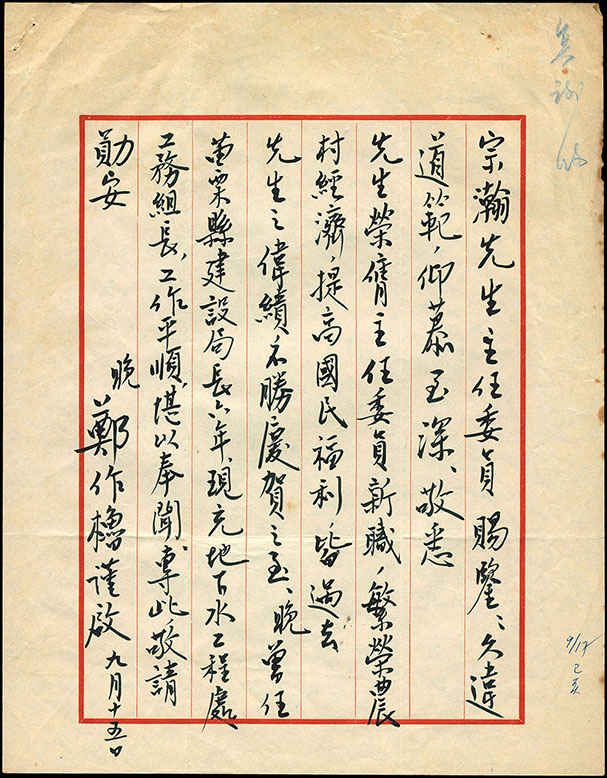 宗瀚先生主任委員　賜鑒、久違
道範，仰慕至深、敬悉
先生榮膺主任委員新職，繁榮農
村經濟，提高國民福利，皆過去
先生之偉績不勝慶賀之至、晚曾任
苗栗縣建設局長六年、現充地下水工程處
工務組長、工作平順、堪以奉聞、專此敬請
勛安
晚
鄭作櫓謹啟 九月十五日
9/17